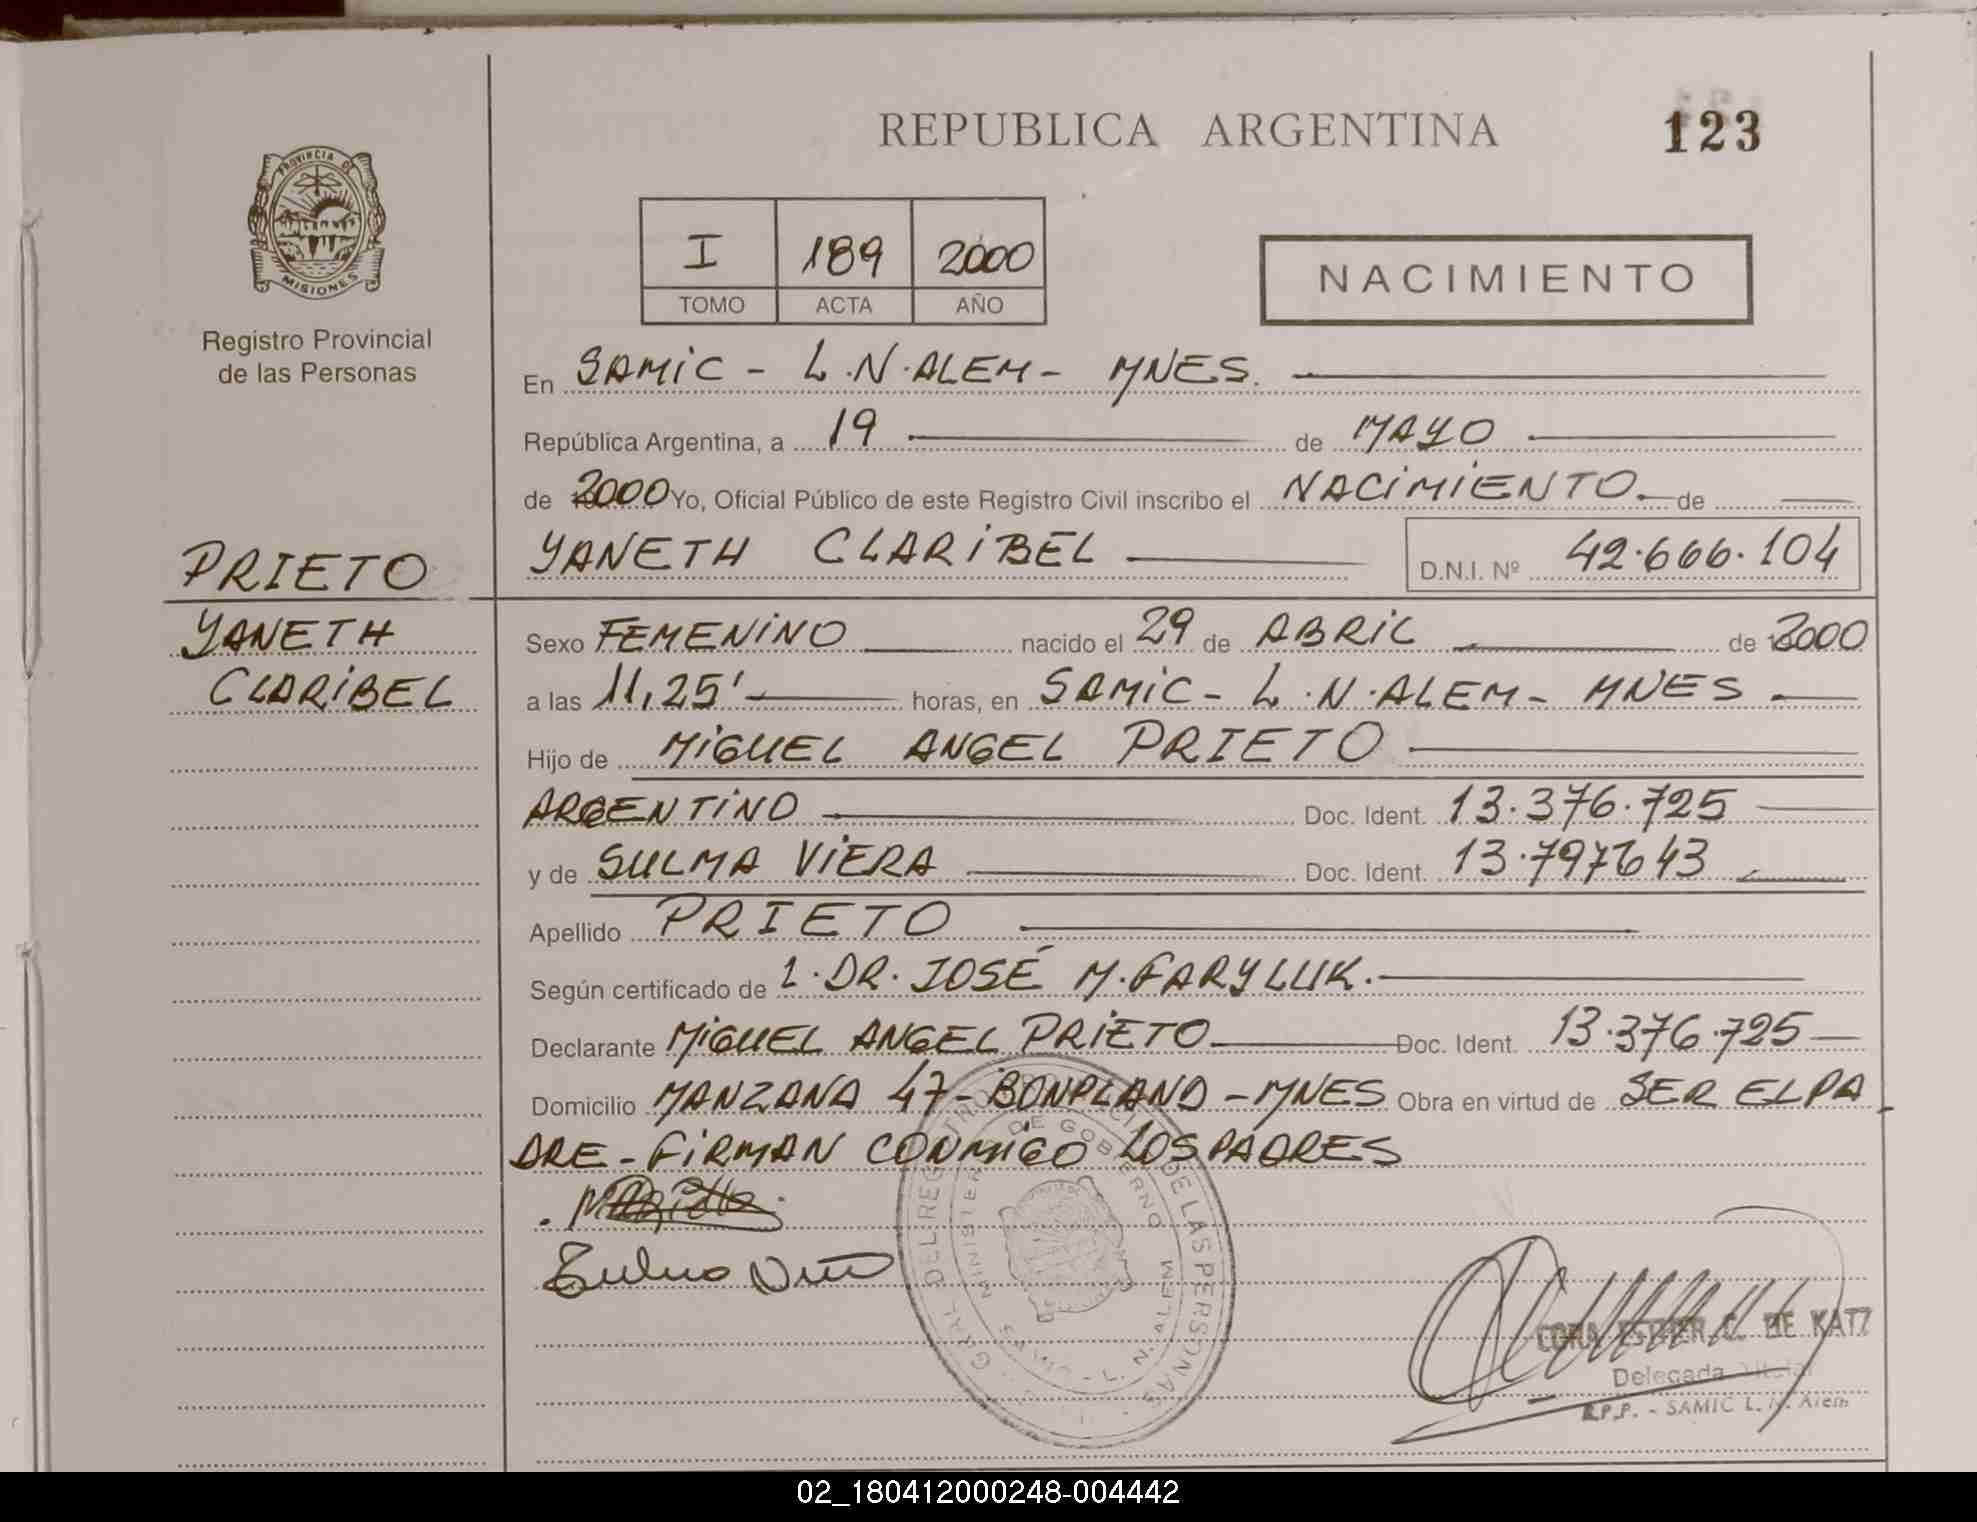 REPUBLICA ARGENTINA
123
PROVINCIA DE
MISIONES
Registro Provincial
de las Personas
I 189 2000
TOMO ACTA AÑO
NACIMIENTO
En SAMIC - L.N.ALEM - MNES.
República Argentina, a 19 de MAYO
de 2000 Yo, Oficial Público de este Registro Civil inscribo el NACIMIENTO de
YANETH CLARIBEL D.N.I. Nº 42.666.104
PRIETO
YANETH
CLARIBEL
Sexo FEMENINO nacido el 29 de ABRIL de 2000
a las 11,25' horas, en SAMIC - L.N.ALEM - MNES.
Hijo de MIGUEL ANGEL PRIETO
ARGENTINO Doc. Ident. 13.376.725
y de SULMA VIERA Doc. Ident. 13.797643
Apellido PRIETO
Según certificado de L.DR. JOSÉ M. FARYLUK.
Declarante MIGUEL ANGEL PRIETO Doc. Ident. 13.376.725
Domicilio MANZANA 47 - BONPLAND - MNES Obra en virtud de SER EL PA
DRE - FIRMAN CONMIGO LOS PADRES
GRAL DEL REGISTRO DE LAS PERSONAS
MINISTERIO DE GOBIERNO
L. N. ALEM
CORA ESTHER C. DE KATZ
Delegada Titular
R.P.P. - SAMIC L. N. Alem
02_180412000248-004442